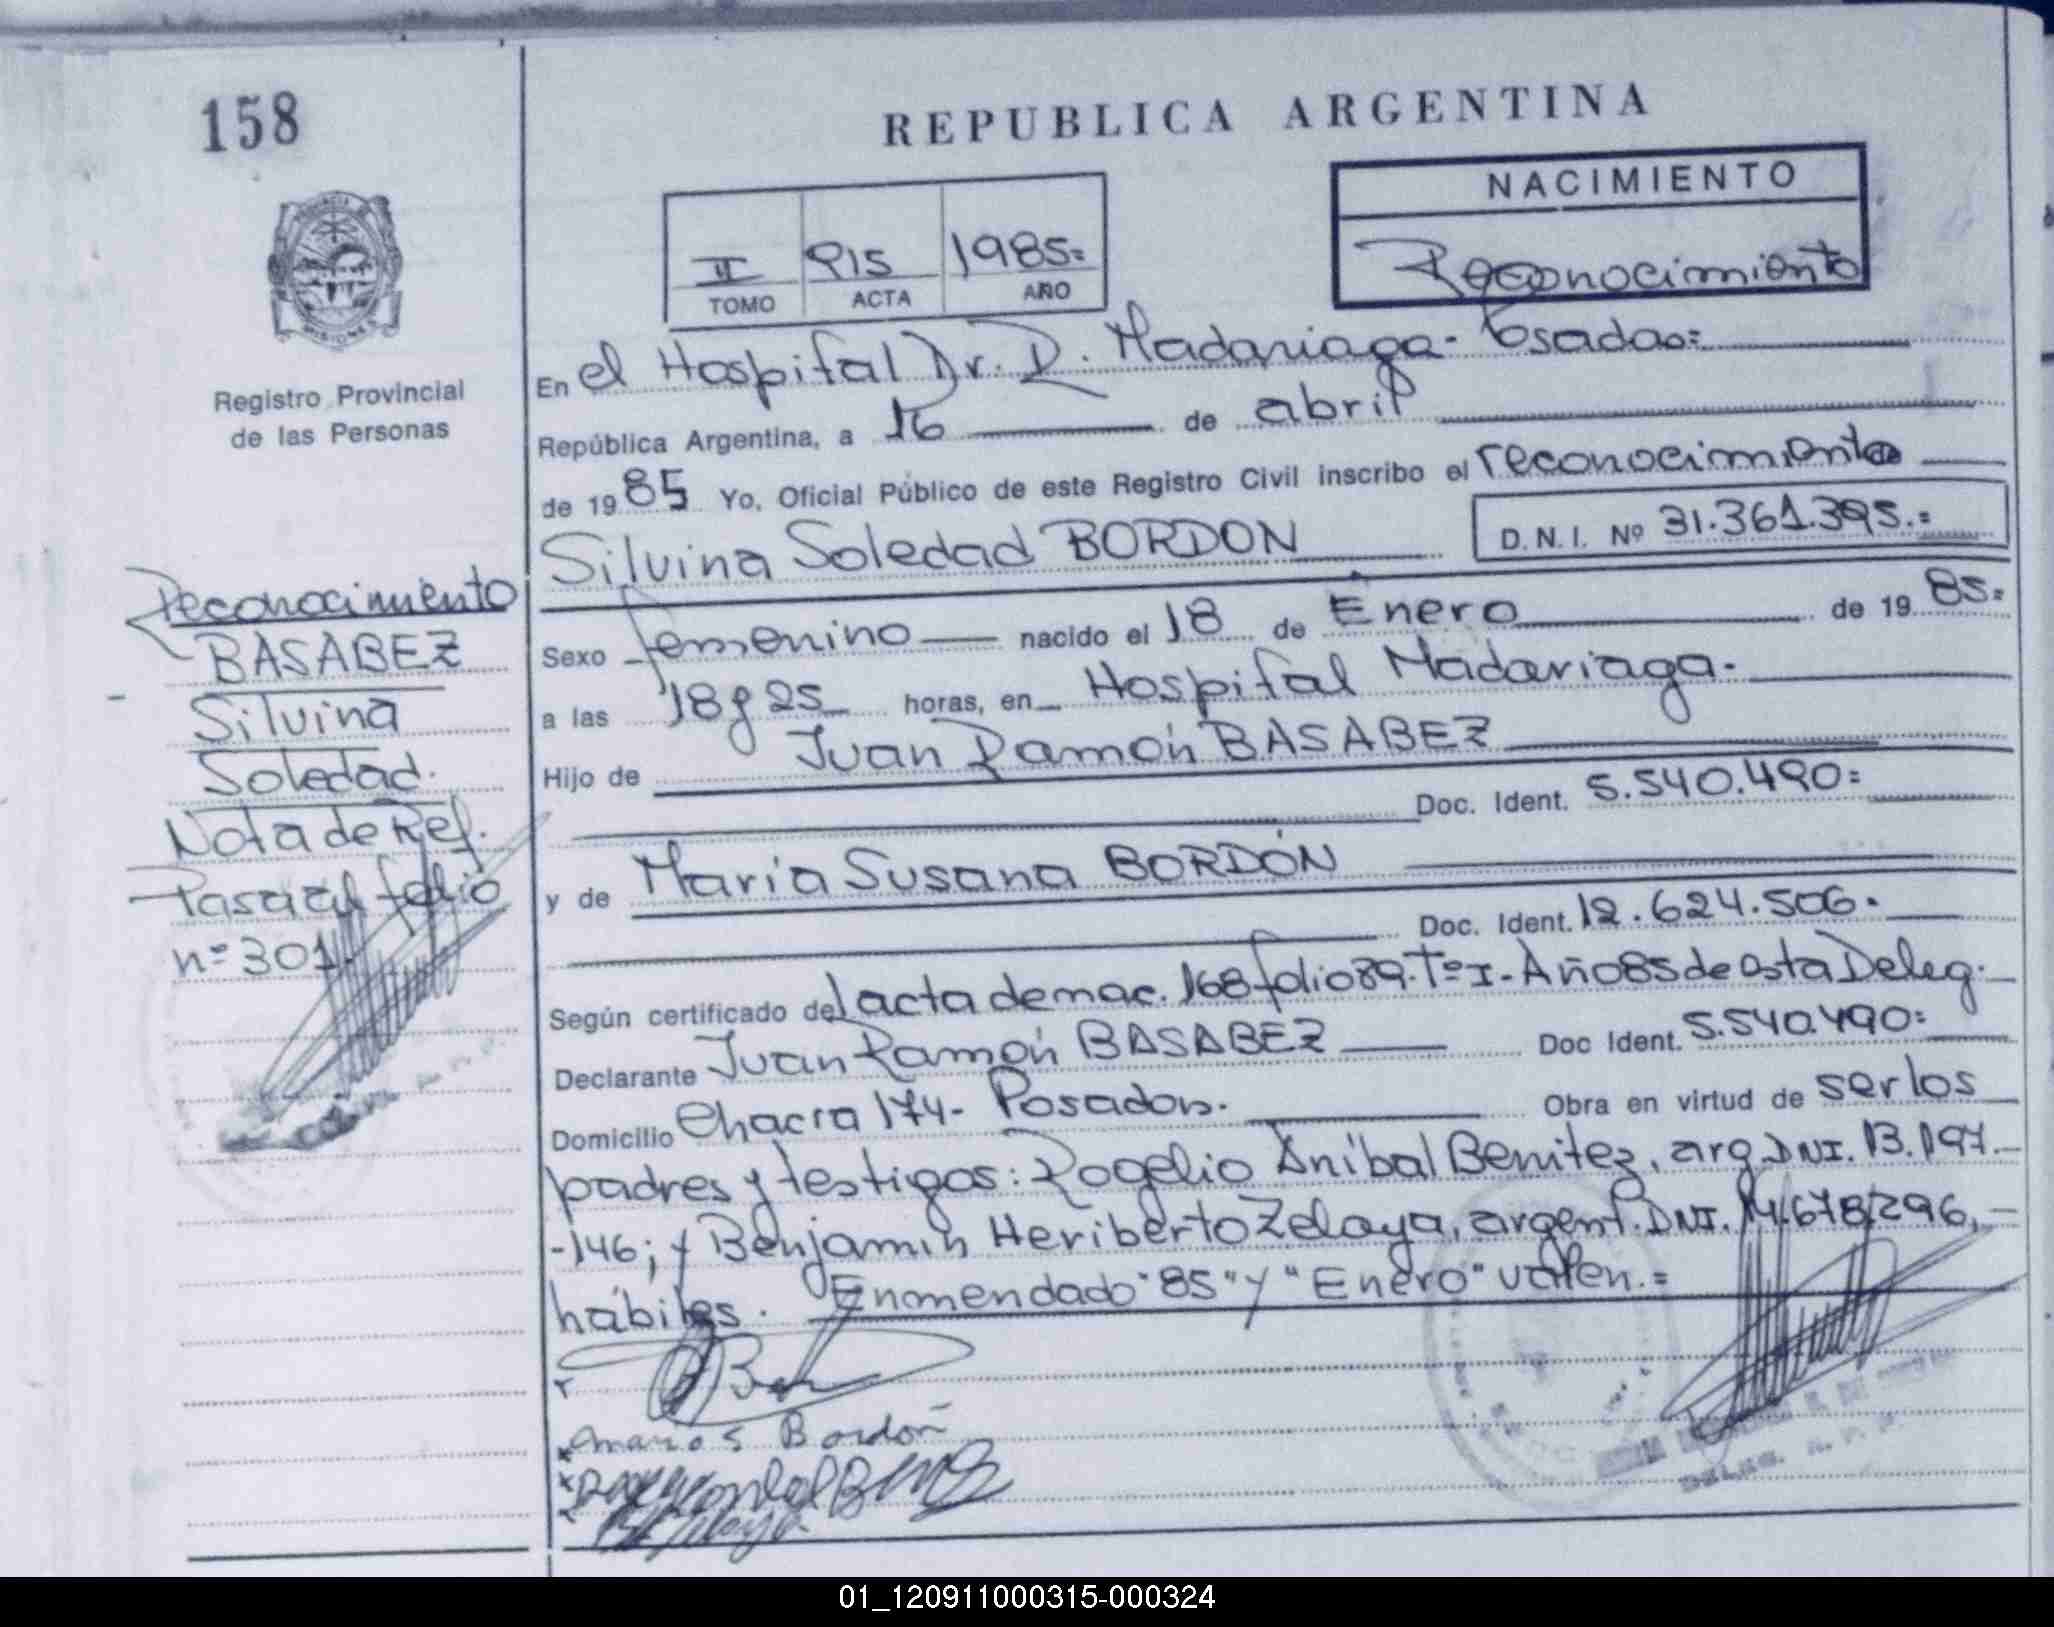 158
REPUBLICA ARGENTINA
NACIMIENTO
Reconocimiento
II 915 1985=
TOMO ACTA AÑO
PROVINCIA DE
MISIONES
Registro Provincial
de las Personas
En el Hospital Dr. R. Madariaga - Posadas=
República Argentina, a 16 de abril
de 19 85 Yo, Oficial Público de este Registro Civil inscribo el reconocimiento
Silvina Soledad BORDON D.N.I. Nº 31.361.395.=
Sexo femenino nacido el 18 de Enero de 19 85=
a las 18 y 25 horas, en Hospital Madariaga.
Hijo de Juan Ramón BASABEZ
Doc. Ident. 5.540.490=
y de María Susana BORDÓN
Doc. Ident. 12.624.506.
Según certificado del acta de nac. 168 folio 89. Tº I - Año 85 de esta Deleg.
Declarante Juan Ramón BASABEZ Doc Ident. 5.540.490=
Domicilio Chacra 174 - Posadas. Obra en virtud de ser los
padres y testigos: Rogelio Aníbal Benitez, arg. DNI. 13.197.-
-146; y Benjamín Heriberto Zelaya, argent. DNI. 14.678.296,
hábiles. Enmendado "85" y "Enero" valen.=
Bordón
Reconocimiento
BASABEZ
Silvina
Soledad.
Nota de Ref.
Pasa al folio
nº 301.
01_120911000315-000324